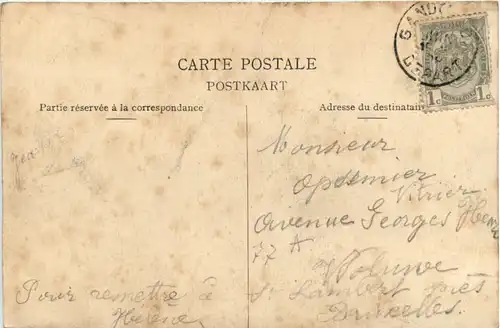 CARTE POSTALE
POSTKAART
Partie réservée à la correspondance
Adresse du destinataire
GAND
DEPART
1c 1c
Monsieur
Opdemier
Avenue Georges Henri
77 A
Woluwe
St Lambert près
Bruxelles.
Pour remettre à
Hélène